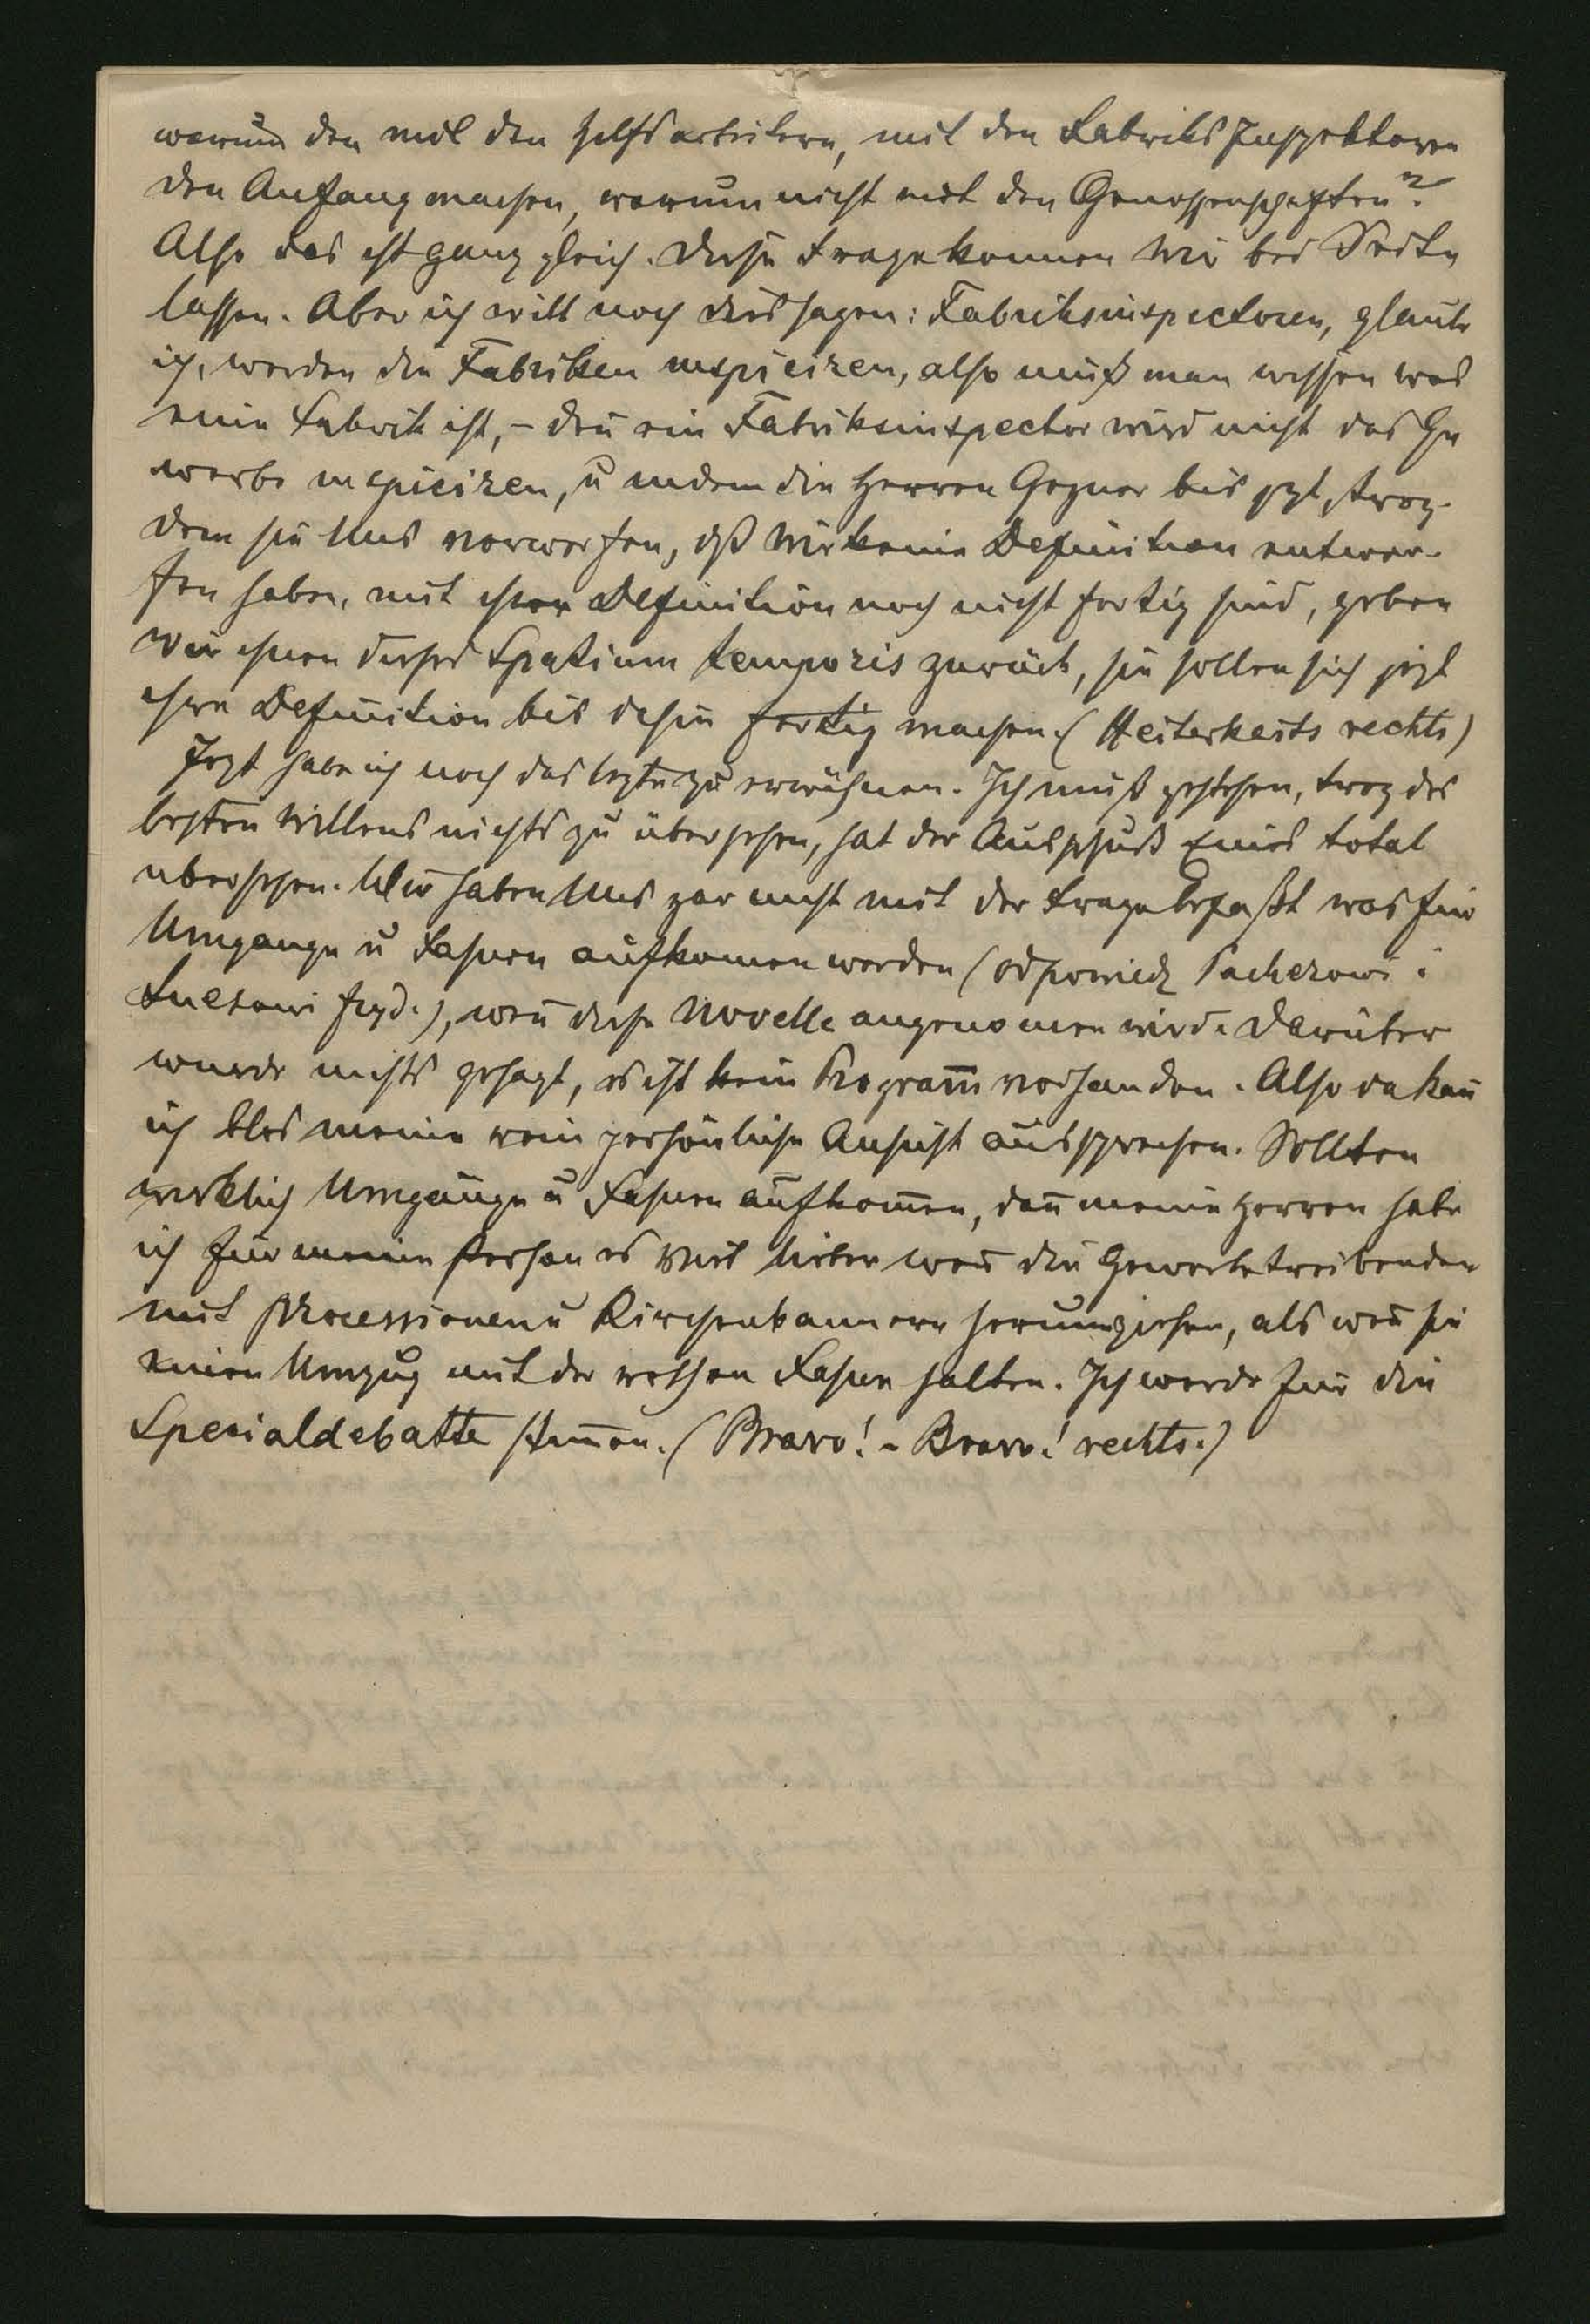 warum den mit den Hilfsarbeitern, mit den Fabriks Inspektoren
den Anfang machen, warum nicht mit den Genossenschaften?
Also das ist ganz gleich. Diese Frage konnen wir bei Seite
lassen. Aber ich will noch dies sagen: Fabriksinspectoren, glaube
ich, werden die Fabriken inspiciren, also muß man wissen was
eine Fabrik ist, – den̄ ein Fabriksinspector wird nicht das Ge
werbe inspiciren, ū indem die Herren Gegner bis jezt, troz-
dem sie Uns vorwerfen, dß wir keine Definition entwor-
fen haben, mit ihrer Definition noch nicht fertig sind, geben
wir ihnen dieses Spatium temporis zurück, sie sollen sich jezt
ihre Definition bis dahin fertig machen. (Heiterkeits rechts)
Jezt habe ich noch das lezte zu erwähnen. Ich muß gestehen, troz des
besten Willens nichts zu übersehen, hat der Ausschuß Eines total
ubersehen. Wir haben Uns gar nicht mit der Frage befaßt was für
Umgange ū Fahnen aufkomen werden (odpowiedz Pacherowi i
Suesowi fryd.), wen̄ diese Novelle angenomen wird. Darüber
wurde nichts gesagt, es ist kein Program̄ vorhanden. Also da kan̄
ich blos meine rein persönliche Ansicht aussprechen. Sollten
wirklich Umgänge ū Fahnen aufkom̄en, dan̄ meine Herren habe
ich für meine Person es viel lieber wen̄ die Gewerbetreibenden
mit Processionen ū Kirchenbannern herumziehen, als wen̄ sie
einen Umzug mit der rothen Fahne halten. Ich werde für die
Specialdebatte stim̄en. (Bravo! – Bravo! rechts.)